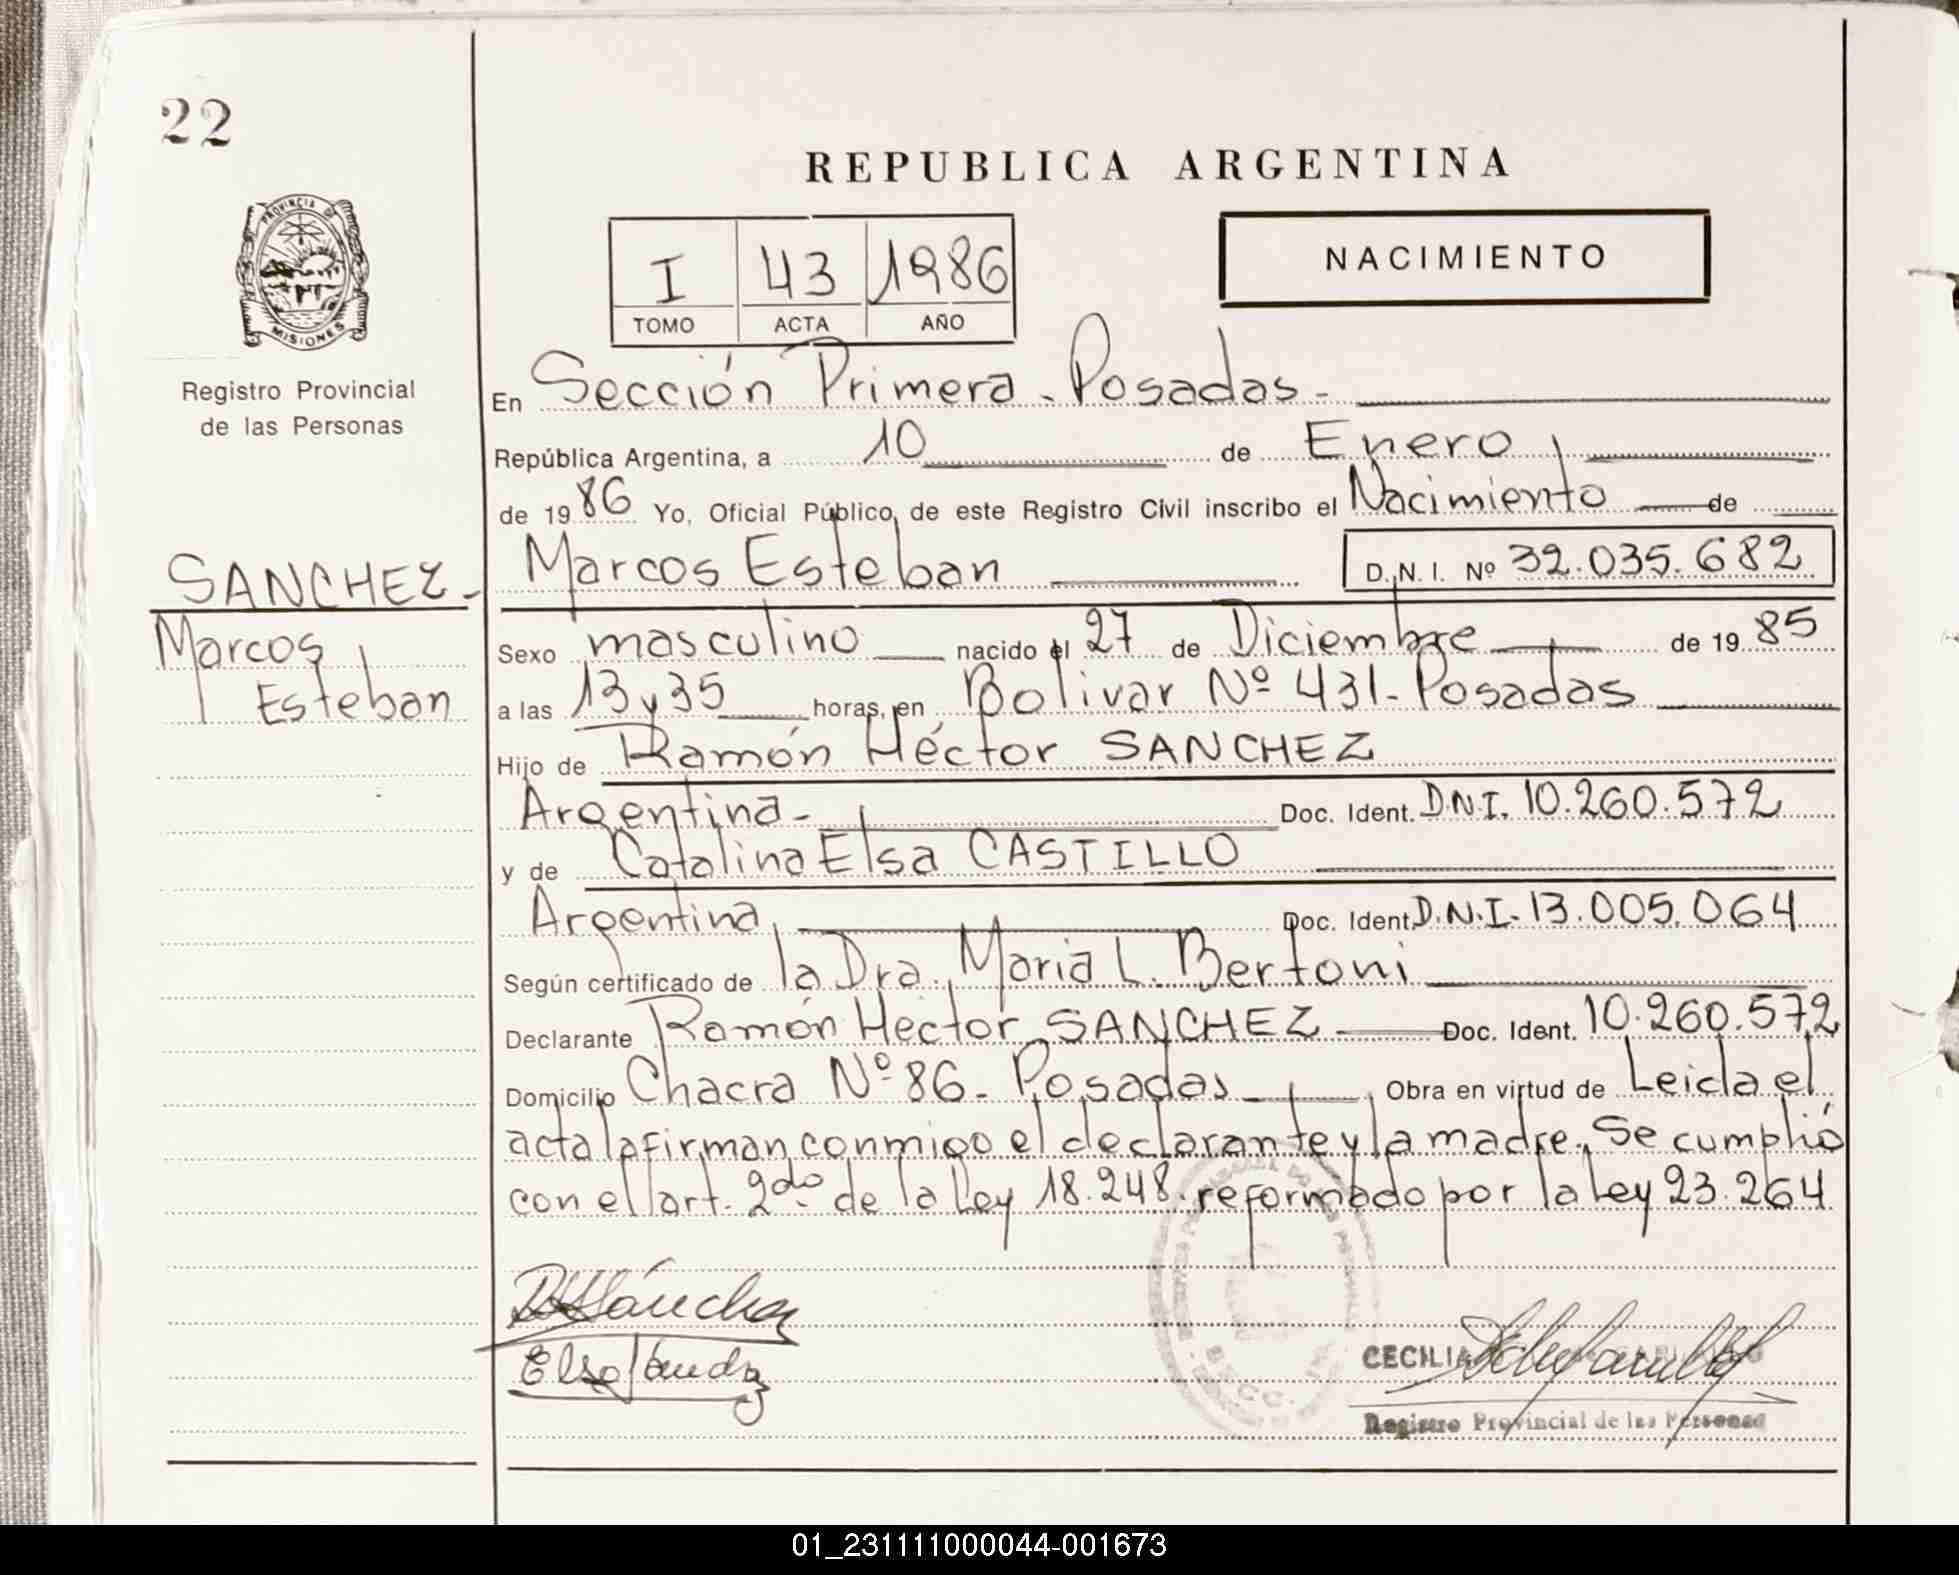 22
REPUBLICA ARGENTINA
PROVINCIA DE
MISIONES
I 43 1986
TOMO ACTA AÑO
NACIMIENTO
Registro Provincial
de las Personas
En Sección Primera - Posadas -
República Argentina, a 10 de Enero,
de 1986 Yo, Oficial Público, de este Registro Civil inscribo el Nacimiento de
SANCHEZ -
Marcos Esteban D.N.I. Nº 32.035.682
Marcos
Esteban
Sexo masculino nacido el 27 de Diciembre de 1985
a las 13 y 35 horas, en Bolivar Nº 431 - Posadas
Hijo de Ramón Héctor SANCHEZ
Argentina - Doc. Ident. D.N.I. 10.260.572
y de Catalina Elsa CASTILLO
Argentina, Doc. Ident. D.N.I. 13.005.064
Según certificado de la Dra. Maria L. Bertoni
Declarante Ramón Hector SANCHEZ Doc. Ident. 10.260.572
Domicilio Chacra Nº 86 - Posadas Obra en virtud de Leida el
acta la firman conmigo el declarante y la madre. Se cumplió
con el art. 2do. de la Ley 18.248. reformado por la Ley 23.264
RHSánchez
Elsa Sanchez
CECILIA
Registro Provincial de las Personas
01_231111000044-001673